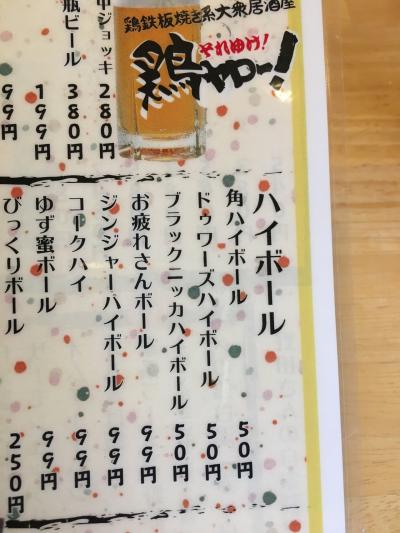 鶏鉄板焼き系大衆居酒屋
それゆけ!
鶏ヤロー!
中ジョッキ 280円
瓶ビール 380円
199円
99円
ハイボール
角ハイボール 50円
ドゥワーズハイボール 50円
ブラックニッカハイボール 50円
お疲れさんボール 99円
ジンジャーハイボール 99円
コークハイ 99円
ゆず蜜ボール 99円
びっくりボール 250円